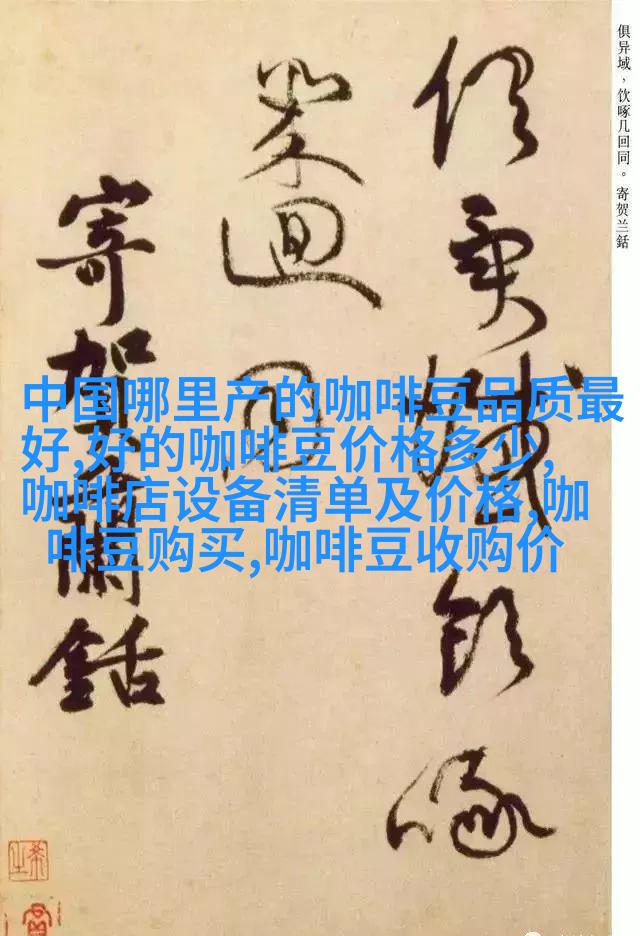 俱异域，饮啄几回同。寄贺兰銛
俱異域飲啄
幾迴同
寄賀蘭銛
中国哪里产的咖啡豆品质最
好,好的咖啡豆价格多少,
咖啡店设备清单及价格,咖
啡豆购买,咖啡豆收购价